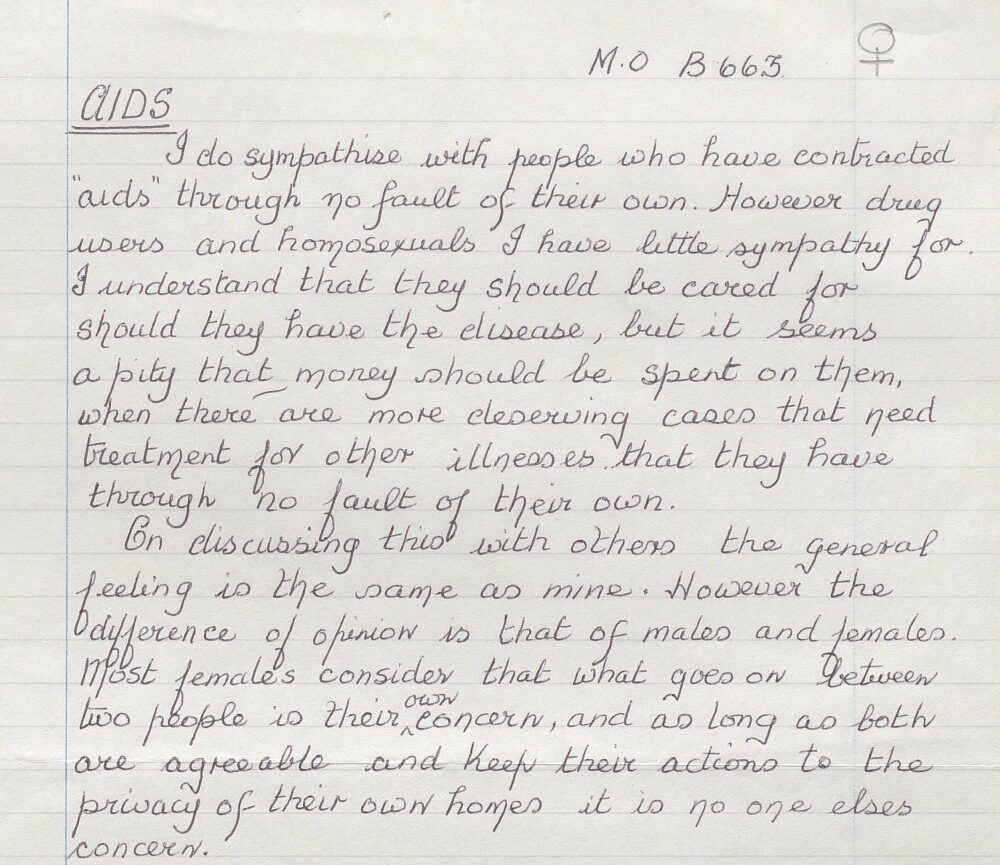 M.O B663 ♀
AIDS
I do sympathise with people who have contracted
"aids" through no fault of their own. However drug
users and homosexuals I have little sympathy for.
I understand that they should be cared for
should they have the disease, but it seems
a pity that money should be spent on them,
when there are more deserving cases that need
treatment for other illnesses that they have
through no fault of their own.
On discussing this with others the general
feeling is the same as mine. However the
difference of opinion is that of males and females.
Most females consider that what goes on between
two people is their own concern, and as long as both
are agreeable and keep their actions to the
privacy of their own homes it is no one elses
concern.